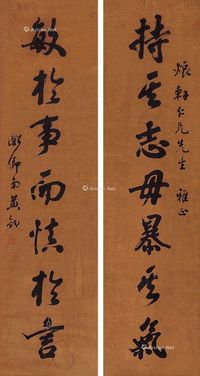 持其志毋暴其氣
敏於事而慎於言
軒仁兄先生 雅正
黃鈞